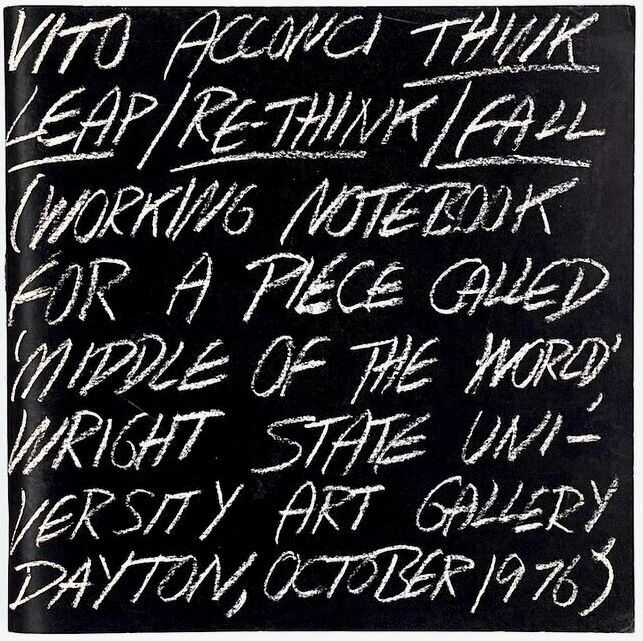 VITO ACCONCI THINK
LEAP/RE-THINK/FALL
(WORKING NOTEBOOK
FOR A PIECE CALLED
'MIDDLE OF THE WORLD',
WRIGHT STATE UNI-
VERSITY ART GALLERY
DAYTON, OCTOBER 1976)